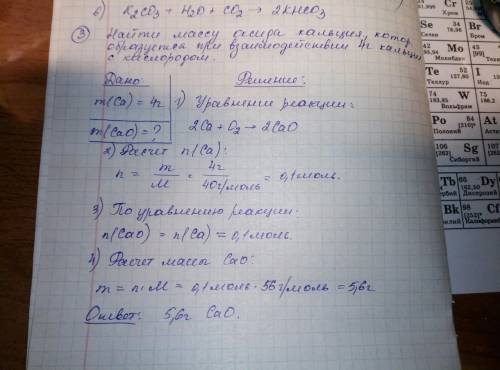 б) K₂CO₃ + H₂O + CO₂ → 2KHCO₃
③ Найти массу оксида кальция, котор.
образуется при взаимодействии 4г кальция
с кислородом.
Дано: Решение:
m(Ca) = 4г
m(CaO) = ?
1) Уравнение реакции:
2Ca + O₂ → 2CaO
2) Расчет n(Ca):
n = m/M = 4г/40г/моль = 0,1 моль.
3) По уравнению реакции:
n(CaO) = n(Ca) = 0,1 моль.
4) Расчет массы CaO:
m = n·M = 0,1 моль · 56 г/моль = 5,6г
Ответ: 5,6г CaO.
Хром
Se 34
Селен 78,96
Br
Бром
42
95,94 Mo
Молибден
Te 52
Теллур 127,60
74
183,85 W
Вольфрам
Po 84
Полоний
Sg
Сиборгий
Tb
Dy
Bk
Cf